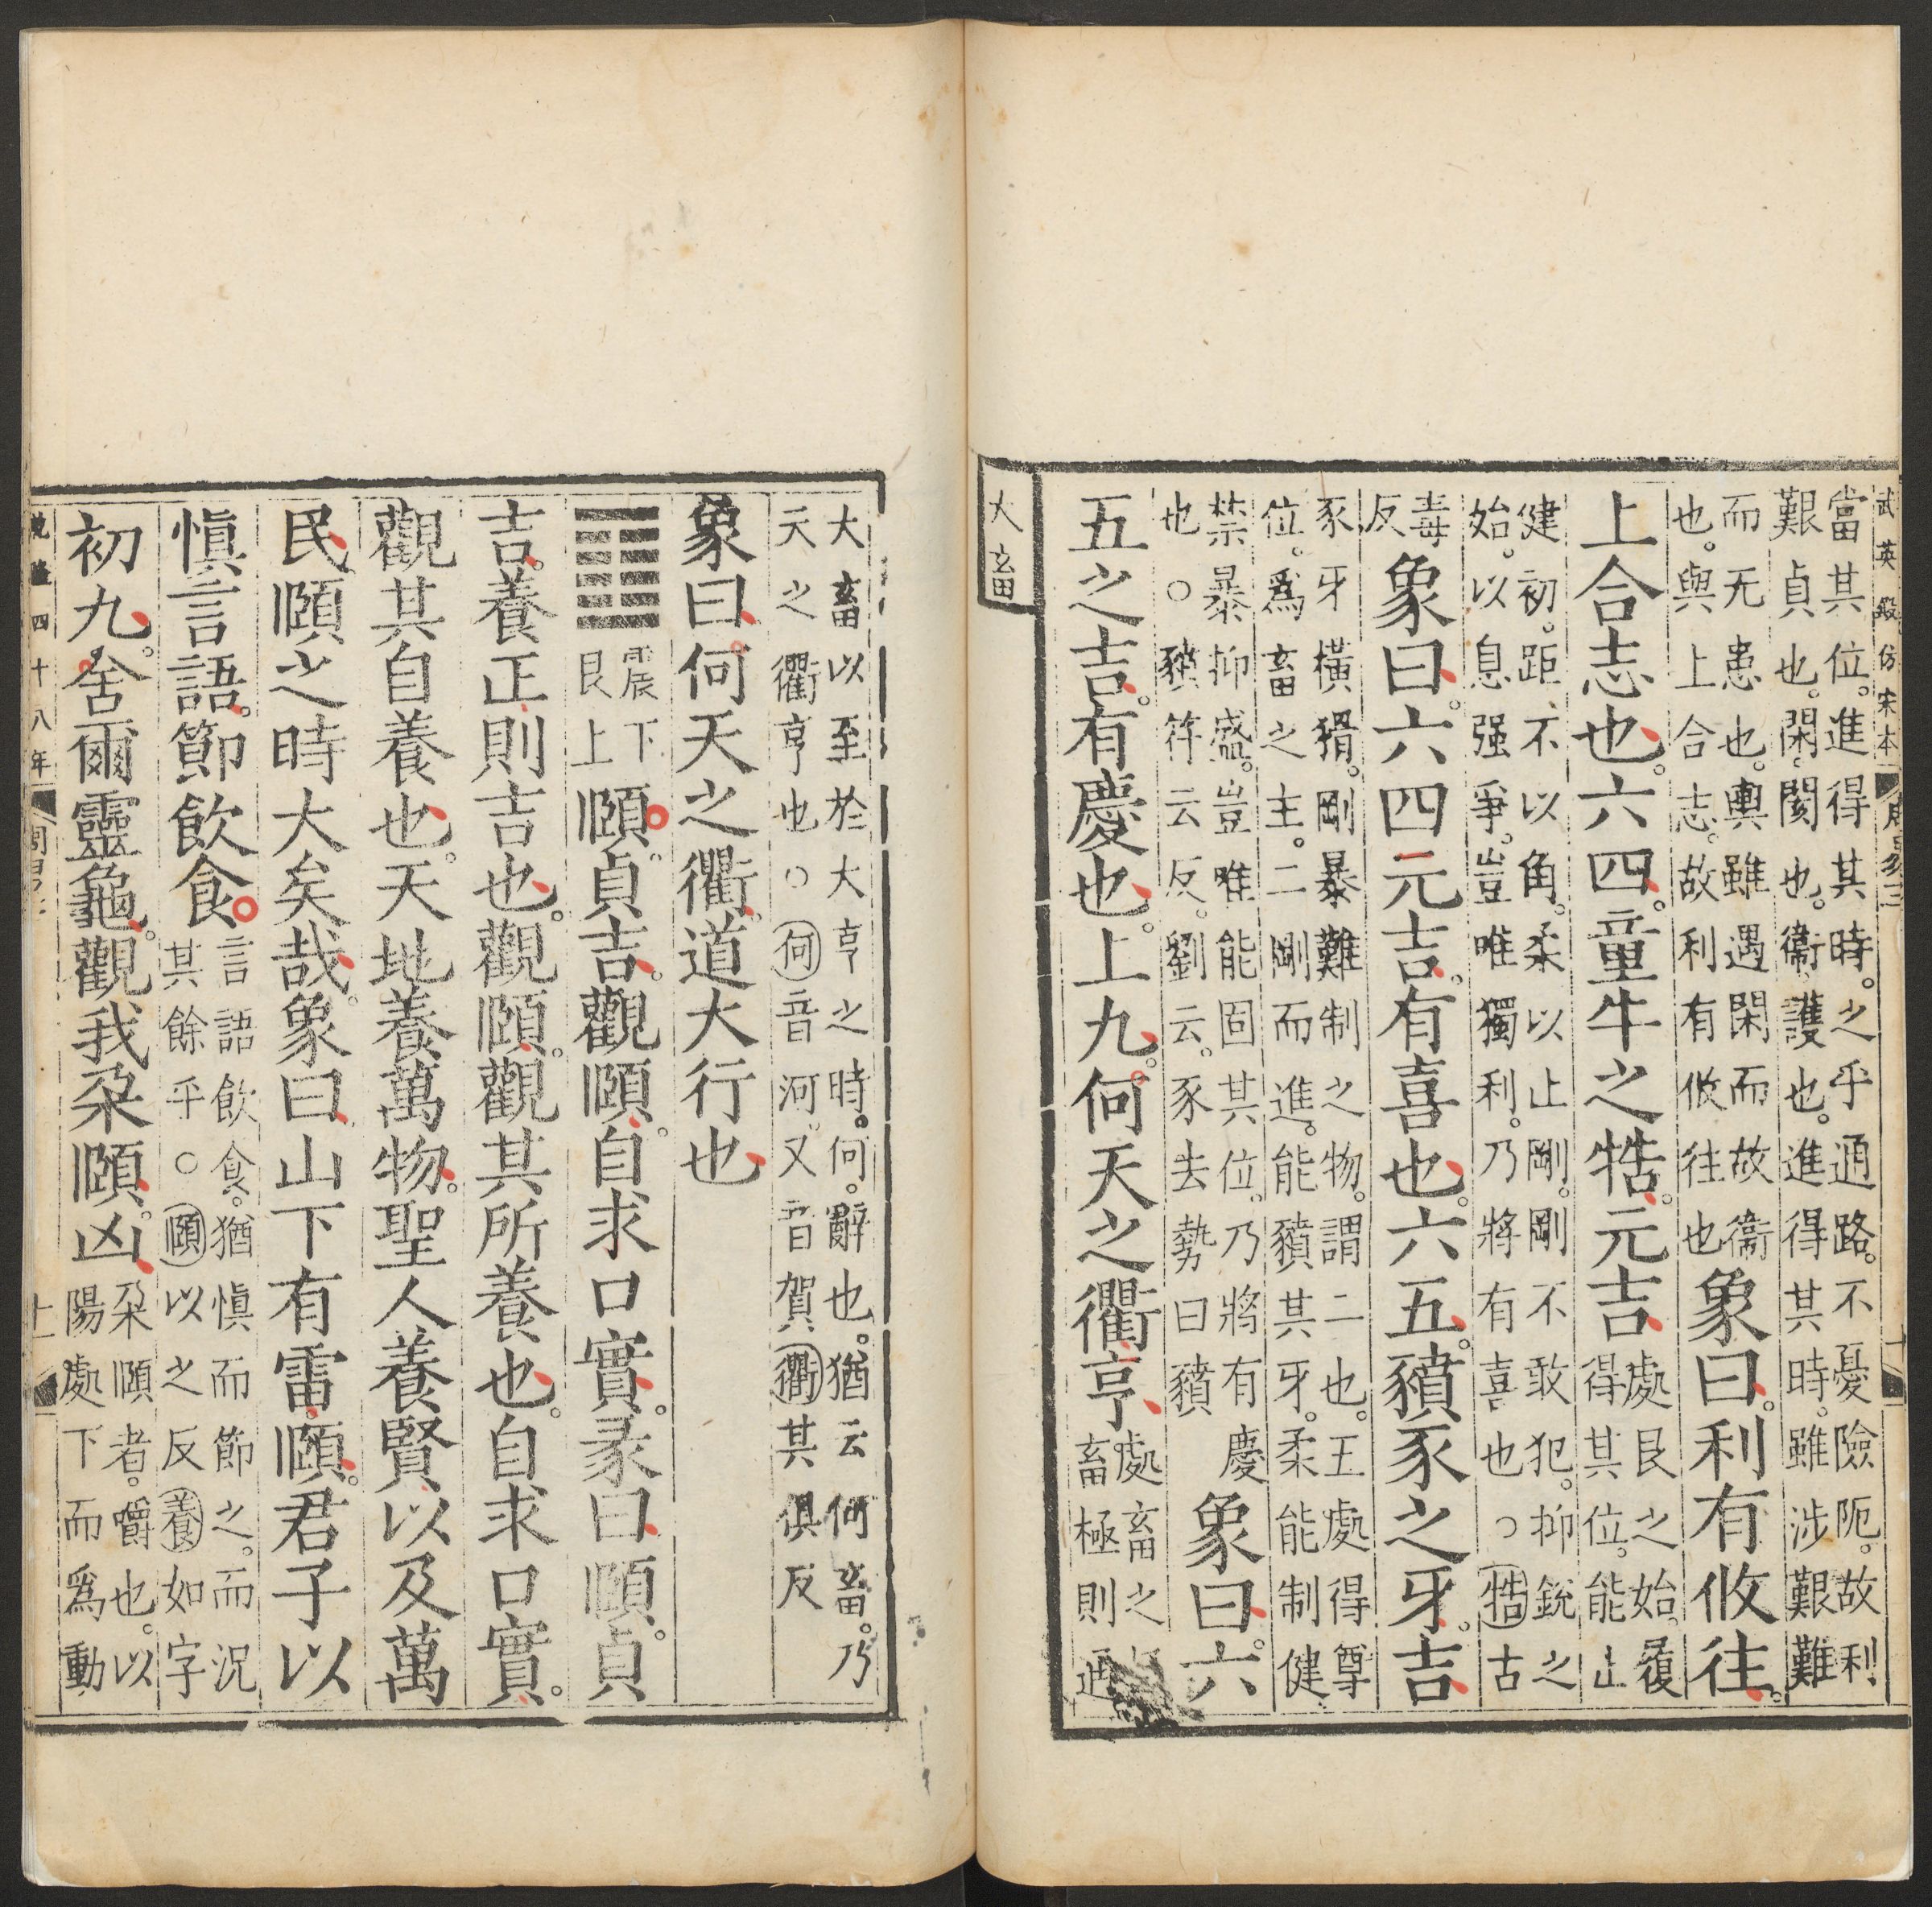 武英殿仿宋本
周易三
十
當其位。進得其時。之乎通路。不憂險阨。故利
艱貞也。閑閡也。衞護也。進得其時。雖涉艱難
而无患也。輿雖遇閑而故衞
也。與上合志。故利有攸往也
象曰。利有攸往。
上合志也。六四。童牛之牿。元吉
處艮之始。履
得其位。能止
健初。距不以角。柔以止剛。剛不敢犯。抑銳之
始。以息强爭。豈唯獨利。乃將有喜也○牿古
毒
反
象曰。六四元吉。有喜也。六五。豶豕之牙。吉
豕牙橫猾。剛暴難制之物。謂二也。五處得尊
位。爲畜之主。二剛而進。能豶其牙。柔能制健
禁暴抑盛。豈唯能固其位。乃將有慶
也○豶符云反。劉云。豕去勢曰豶
象曰。六
五之吉。有慶也。上九。何天之衢。亨
處畜之
畜極則通
大畜
大畜以至於大亨之時。何。辭也。猶云何畜。乃
天之衢亨也○何音河。又音賀衢其俱反
象曰。何天之衢。道大行也
震下
艮上
頤。貞吉。觀頤。自求口實。彖曰。頤。貞
吉。養正則吉也。觀頤。觀其所養也。自求口實。
觀其自養也。天地養萬物。聖人養賢以及萬
民。頤之時大矣哉。象曰。山下有雷。頤。君子以
慎言語。節飲食。
言語飲食。猶慎而節之。而況
其餘乎○頤以之反養如字
初九。舍爾靈龜。觀我朵頤。凶
朵頤者。嚼也。以
陽處下而爲動
乾隆四十八年
周易三
十一